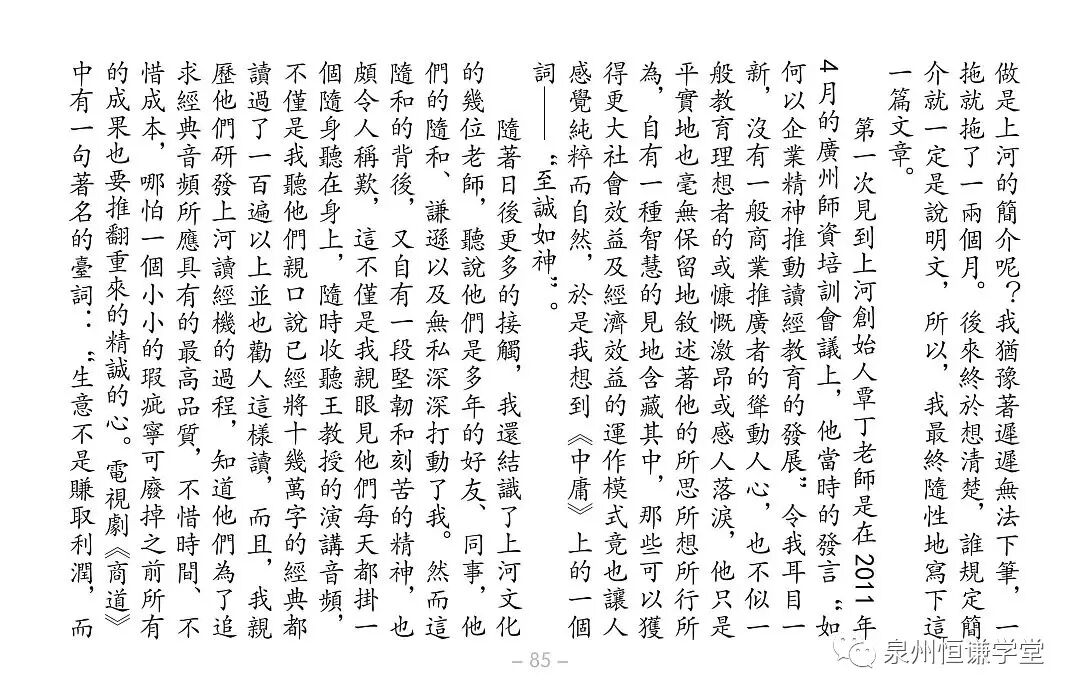 做是上河的簡介呢？我猶豫著遲遲無法下筆，一
拖就拖了一兩個月。後來終於想清楚，誰規定簡
介就一定是說明文，所以，我最終隨性地寫下這
一篇文章。
第一次見到上河創始人覃丁老師是在2011年
4月的廣州師資培訓會議上，他當時的發言“如
何以企業精神推動讀經教育的發展”令我耳目一
新，沒有一般商業推廣者的聳動人心，也不似一
般教育理想者的或慷慨激昂或感人落淚，他只是
平實地也毫無保留地敘述著他的所思所想所行所
為，自有一種智慧的見地含藏其中，那些可以獲
得更大社會效益及經濟效益的運作模式竟也讓人
感覺純粹而自然，於是我想到《中庸》上的一個
詞——“至誠如神”。
隨著日後更多的接觸，我還結識了上河文化
的幾位老師，聽說他們是多年的好友、同事，他
們的隨和、謙遜以及無私深深打動了我。然而這
隨和的背後，又自有一段堅韌和刻苦的精神，也
頗令人稱歎，這不僅是我親眼見他們每天都掛一
個隨身聽在身上，隨時收聽王教授的演講音頻，
不僅是我聽他們親口說已經將十幾萬字的經典都
讀過了一百遍以上並也勸人這樣讀，而且，我親
歷他們研發上河讀經機的過程，知道他們為了追
求經典音頻所應具有的最高品質，不惜時間、不
惜成本，哪怕一個小小的瑕疵寧可廢掉之前所有
的成果也要推翻重來的精誠的心。電視劇《商道》
中有一句著名的臺詞：“生意不是賺取利潤，而
– 85 –
泉州恒谦学堂